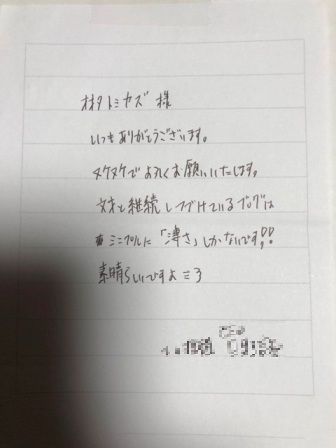 オオタトミカズ 様
いつもありがとうございます。
ヌケヌケでよろしくお願いいたします。
文才と継続しつづけているブログは
ミニマルに「凄さ」しかないです!!
素晴らしいですよ=3